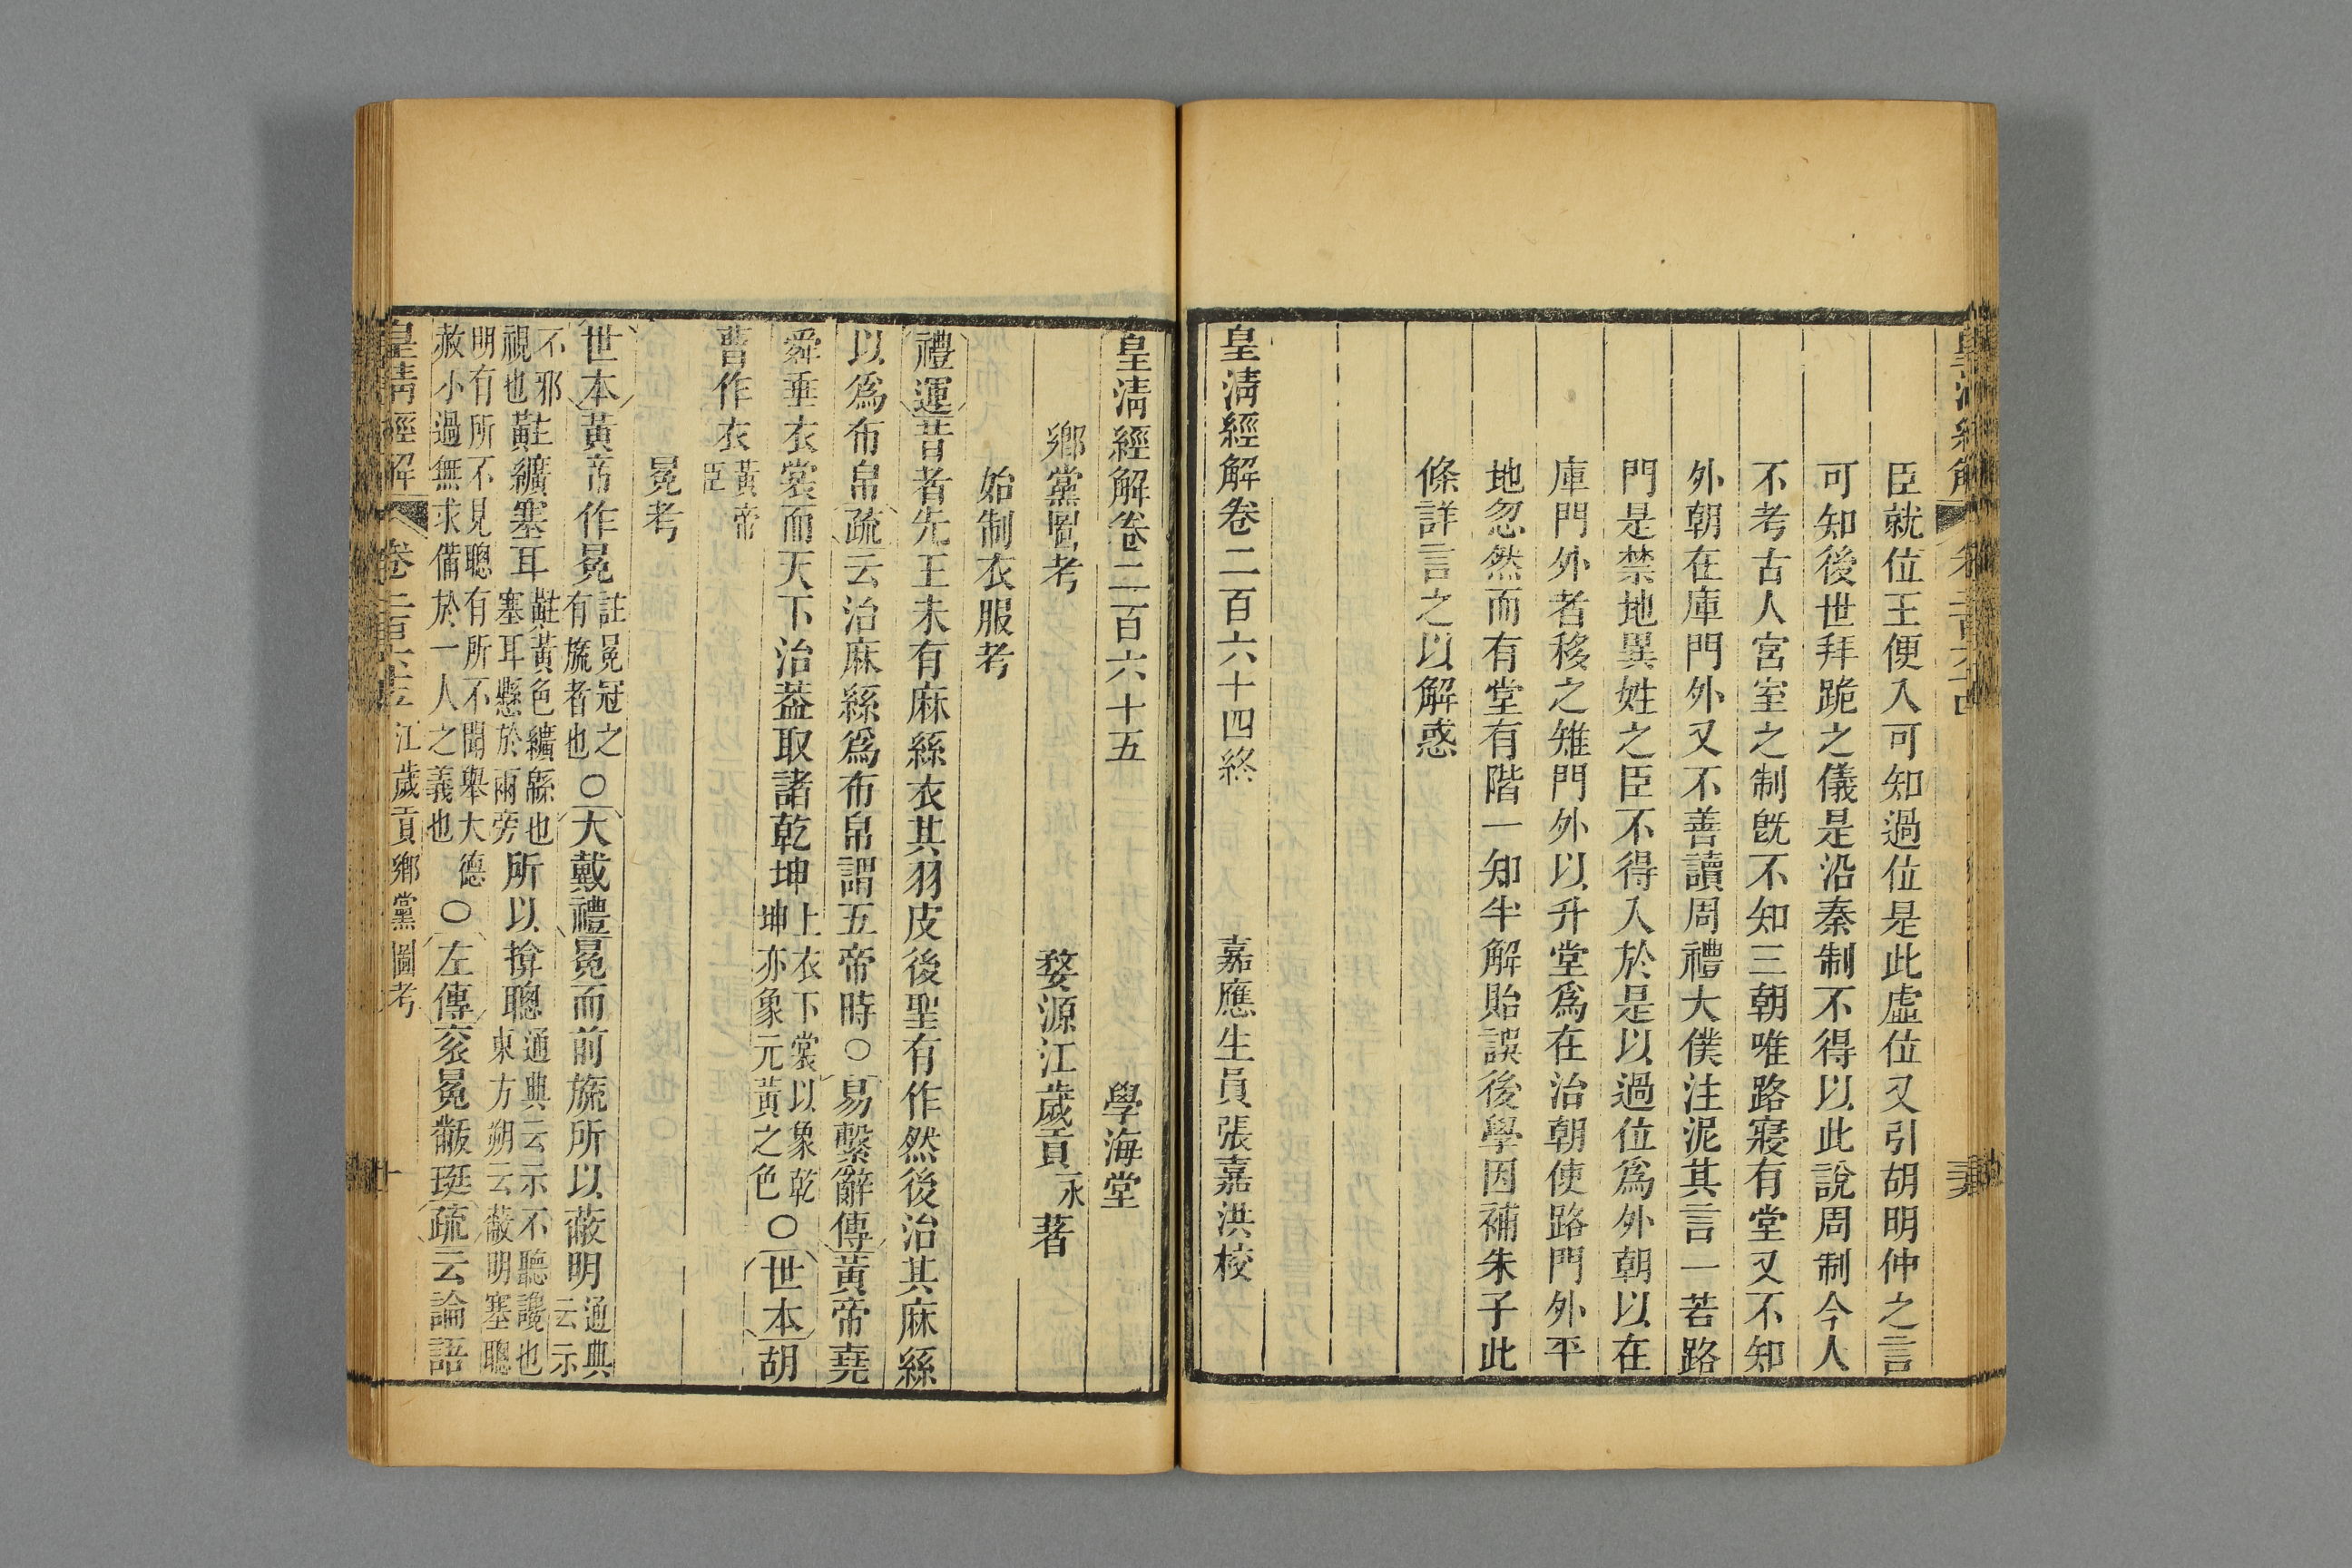 臣就位王便入可知過位是此虛位又引胡明仲之言
可知後世拜跪之儀是沿秦制不得以此說周制今人
不考古人宮室之制旣不知三朝唯路寢有堂又不知
外朝在庫門外又不善讀周禮大僕注泥其言一若路
門是禁地異姓之臣不得入於是以過位爲外朝以在
庫門外者移之雉門外以升堂爲在治朝使路門外平
地忽然而有堂有階一知半解貽誤後學因補朱子此
條詳言之以解惑
皇淸經解卷二百六十四終
嘉應生員張嘉洪校
皇淸經解卷二百六十五
學海堂
鄉黨圖考
婺源江歲貢永著
始制衣服考
禮運昔者先王未有麻絲衣其羽皮後聖有作然後治其麻絲
以爲布帛疏云治麻絲爲布帛謂五帝時○易繫辭傳黃帝堯
舜垂衣裳而天下治葢取諸乾坤上衣下裳以象乾坤亦象元黃之色○世本胡
曹作衣黃帝臣
冕考
世本黃帝作冕註冕冠之有旒者也○大戴禮冕而前旒所以蔽明通典云示
不邪視也黈纊塞耳註黈黃色纊緜也塞耳懸於兩旁所以揜聰通典云示不聽讒也東方朔云蔽明塞聰
明有所不見聰有所不聞舉大德赦小過無求備於一人之義也○左傳衮冕黻珽疏云論語
皇淸經解
卷二百六十五
江歲貢鄉黨圖考